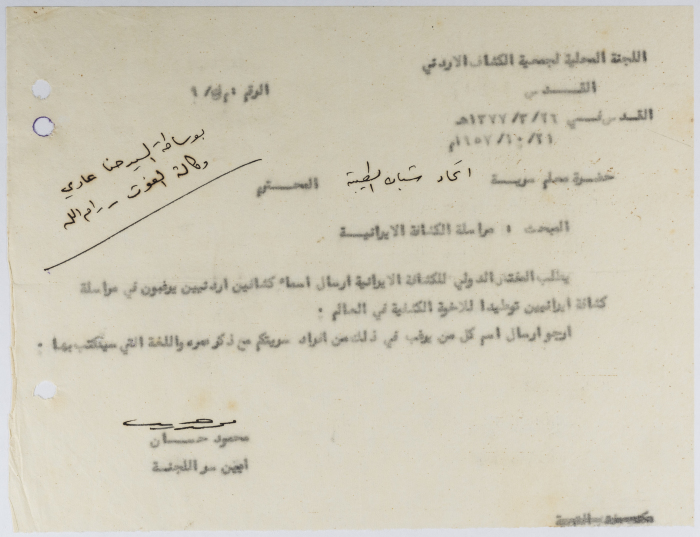 اللجنة المحلية لجمعية الكشاف الاردني
القدس
الرقم
القدس في ٢٦/٣/١٣٧٧هـ
٢١/١٠/١٩٥٧م
بوساطة السيد حنا عادي
وكالة الغوث - رام الله
حضرة معلم سرية اتحاد شباب الطيبة المحترم
المبحث : مراسلة الكشافة الايرانية
يطلب المختار الدولي للكشافة الايرانية ارسال اسماء كشافين اردنيين يرغبون في مراسلة
كشافة ايرانيين توطيدا للاخوة الكشفية في العالم .
ارجو ارسال اسم كل من يرغب في ذلك من افراد سريتكم مع ذكر عمره واللغة التي سيكتب بها .
محمود حسان
امين سر اللجنة